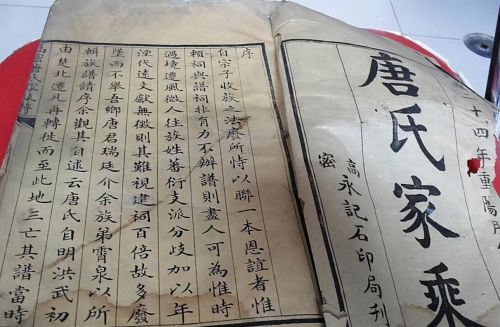 十四年重陽
唐氏家乘
高密
永記石印局刊
序
自宗子收族之法廢所恃以聯一本恩誼者惟
賴祠與譜祠非有力不辦譜則盡人可為惟時
過境遷風微人往族姓蕃衍支派分歧加以年
湮代遠文獻無徵則其難視建祠百倍故多廢
墜而不舉吾鄉唐君瑞廷介余族弟霄泉以所
輯族譜請序余觀其自述云唐氏自明洪武初
由楚北遷凡再轉徙而至此地三亡其譜當時